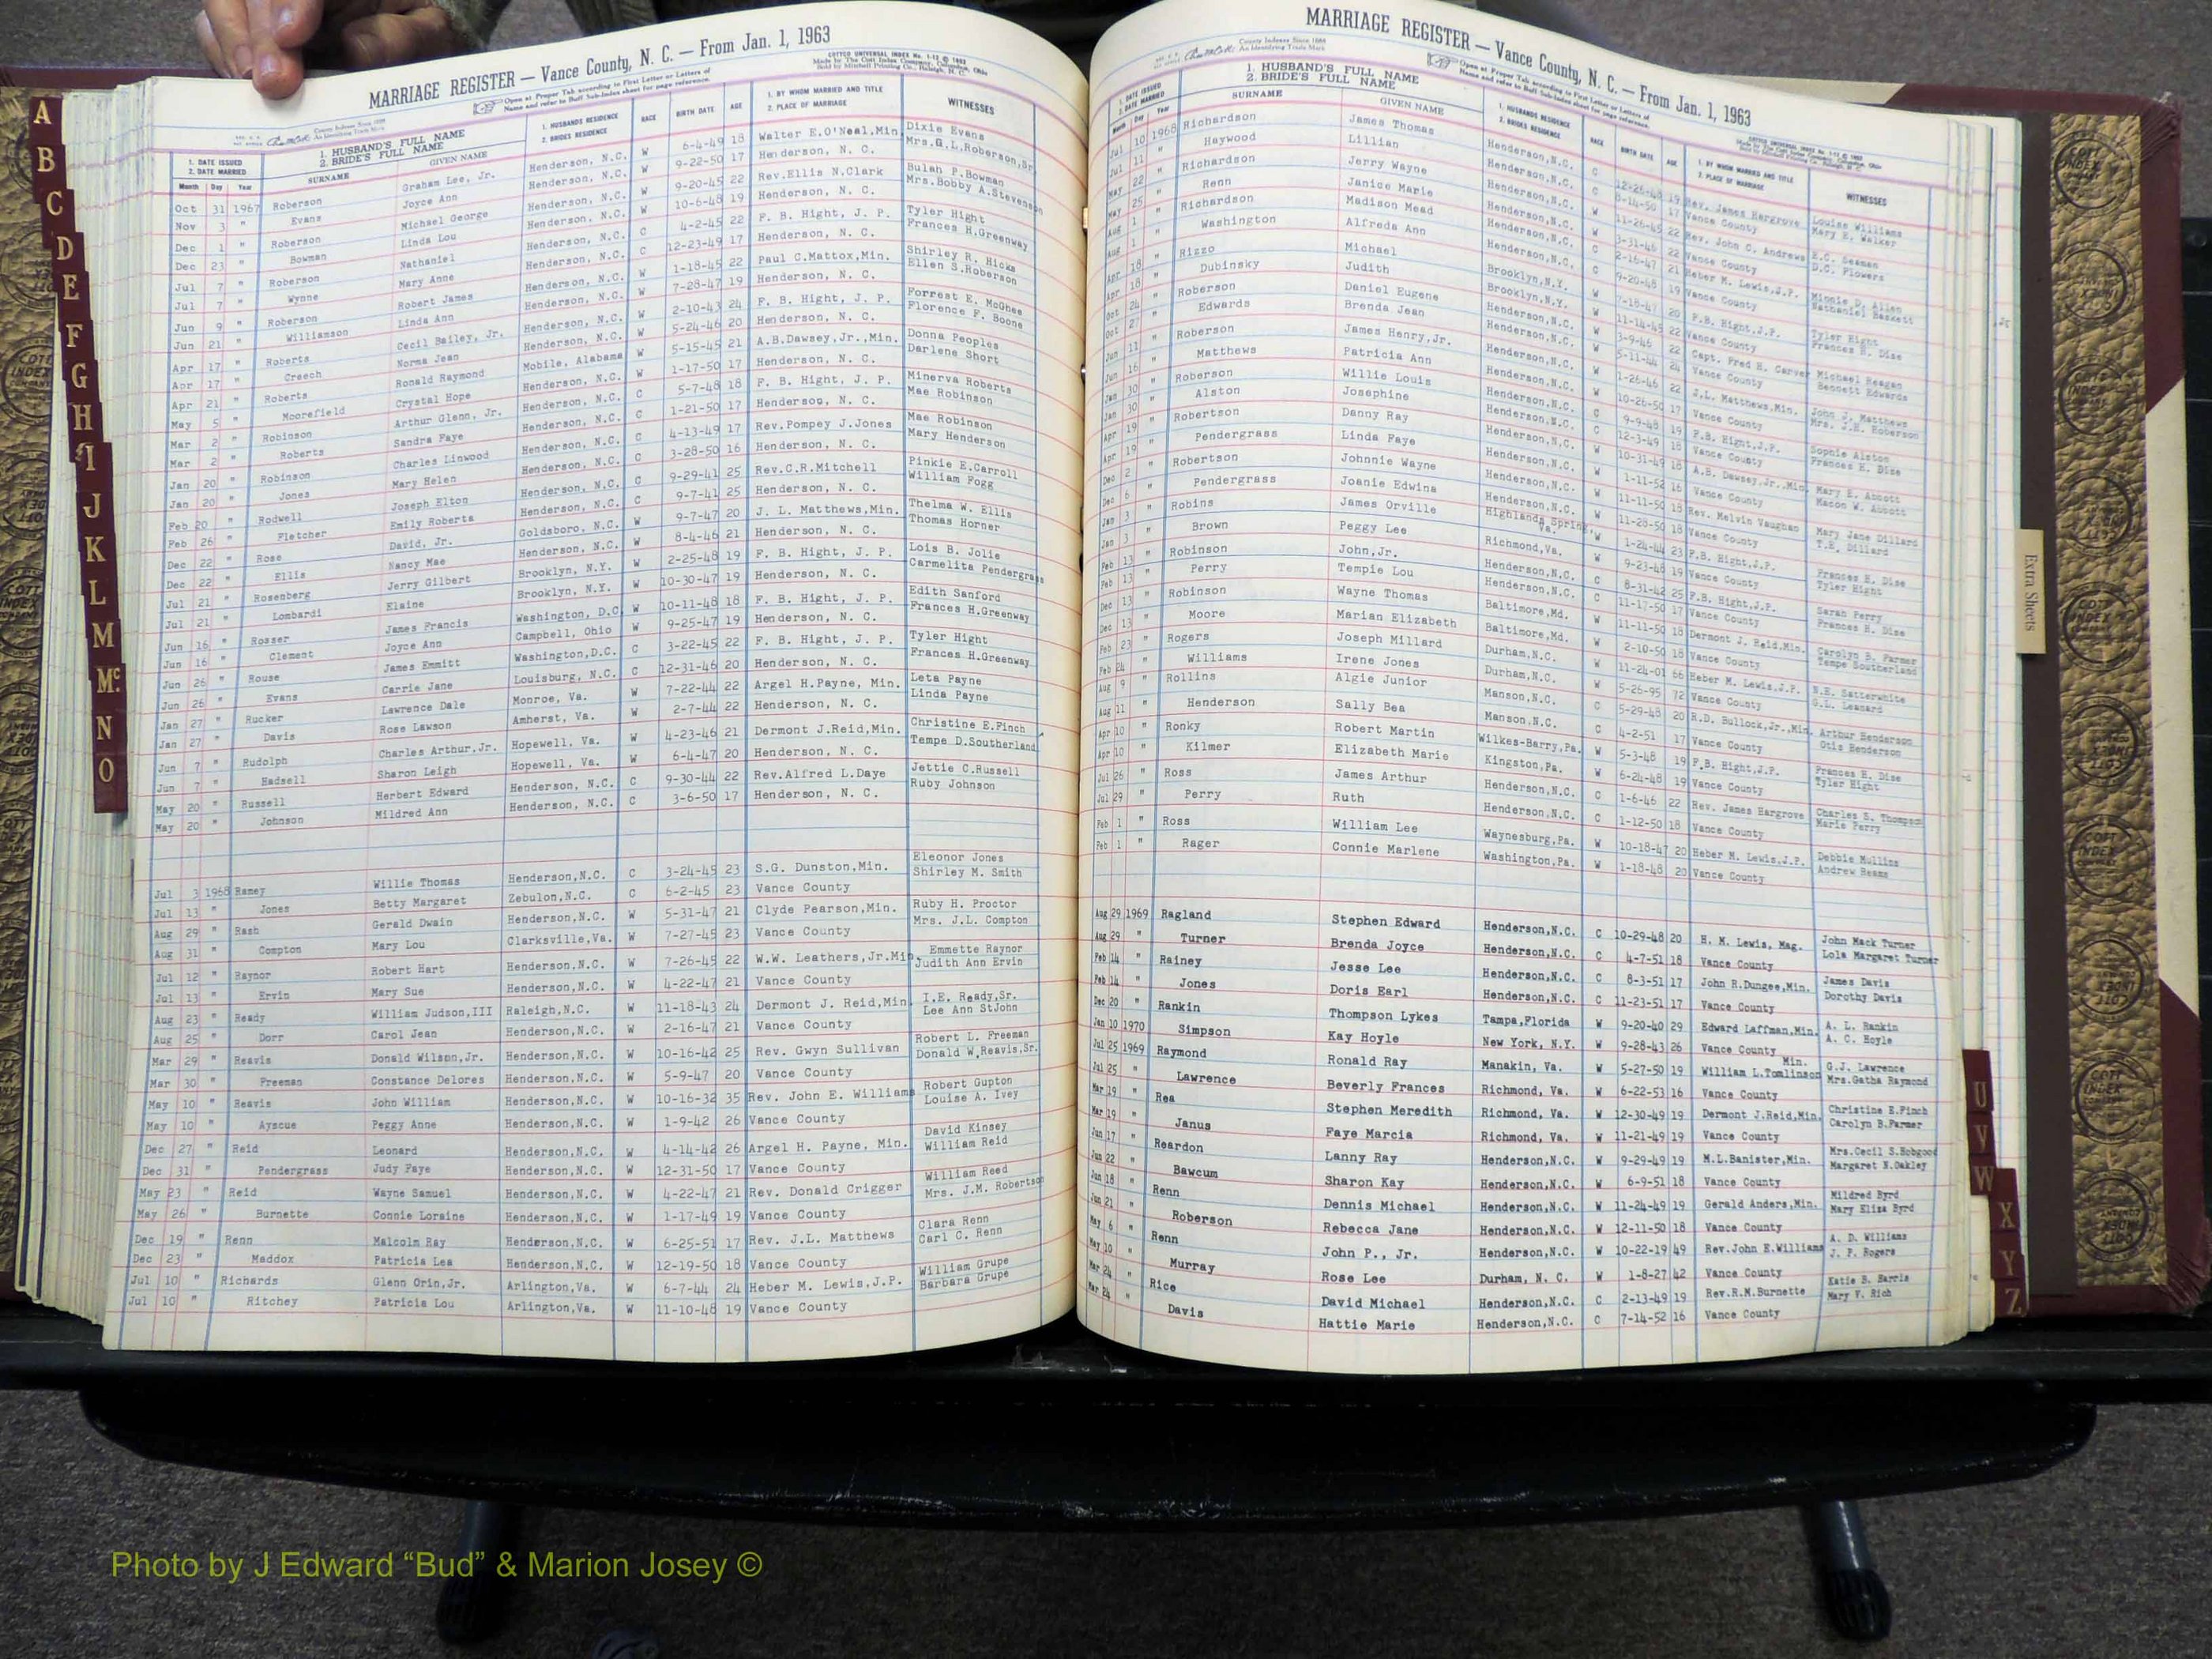 MARRIAGE REGISTER — Vance County, N. C. — From Jan. 1, 1963
COTTCO UNIVERSAL INDEX No. 1-12 © 1962
Made by The Cott Index Company, Columbus, Ohio
Sold by Mitchell Printing Co., Raleigh, N. C.
Open at Proper Tab according to First Letter or Letters of
Name and refer to Buff Sub-Index sheet for page reference.
County Indexes Since 1888
An Identifying Trade Mark
1. DATE ISSUED
2. DATE MARRIED
Month Day Year
1. HUSBAND'S FULL NAME
2. BRIDE'S FULL NAME
SURNAME GIVEN NAME
1. HUSBANDS RESIDENCE
2. BRIDES RESIDENCE
RACE BIRTH DATE AGE
1. BY WHOM MARRIED AND TITLE
2. PLACE OF MARRIAGE
WITNESSES
Oct 31 1967 Roberson Graham Lee, Jr. Henderson, N.C. W 6-4-49 18 Walter E.O'Neal,Min. Dixie Evans
Nov 3 " Evans Joyce Ann Henderson, N.C. W 9-22-50 17 Henderson, N. C. Mrs.G.L.Roberson,Sr.
Dec 1 " Roberson Michael George Henderson, N.C. W 9-20-45 22 Rev.Ellis N.Clark Bulah P.Bowman
Dec 23 " Bowman Linda Lou Henderson, N.C. W 10-6-48 19 Henderson, N. C. Mrs.Bobby A.Stevenson
Jul 7 " Roberson Nathaniel Henderson, N.C. C 4-2-45 22 F. B. Hight, J. P. Tyler Hight
Jul 7 " Wynne Mary Anne Henderson, N.C. C 12-23-49 17 Henderson, N. C. Frances H.Greenway
Jun 9 " Roberson Robert James Henderson, N.C. W 1-18-45 22 Paul C.Mattox,Min. Shirley R. Hicks
Jun 21 " Williamson Linda Ann Henderson, N.C. W 7-28-47 19 Henderson, N. C. Ellen S.Roberson
Apr 17 " Roberts Cecil Bailey, Jr. Henderson, N.C. W 2-10-43 24 F. B. Hight, J. P. Forrest E. McGhee
Apr 17 " Creech Norma Jean Henderson, N.C. W 5-24-46 20 Henderson, N. C. Florence F. Boone
Apr 21 " Roberts Ronald Raymond Mobile, Alabama W 5-15-45 21 A.B.Dawsey,Jr.,Min. Donna Peoples
May 5 " Moorefield Crystal Hope Henderson, N.C. W 1-17-50 17 Henderson, N. C. Darlene Short
Mar 2 " Robinson Arthur Glenn, Jr. Henderson, N.C. C 5-7-48 18 F. B. Hight, J. P. Minerva Roberts
Mar 2 " Roberts Sandra Faye Henderson, N.C. C 1-21-50 17 Henderson, N. C. Mae Robinson
Jan 20 " Robinson Charles Linwood Henderson, N.C. C 4-13-49 17 Rev.Pompey J.Jones Mae Robinson
Jan 20 " Jones Mary Helen Henderson, N.C. C 3-28-50 16 Henderson, N. C. Mary Henderson
Feb 20 " Rodwell Joseph Elton Henderson, N.C. C 9-29-41 25 Rev.C.R.Mitchell Pinkie E.Carroll
Feb 26 " Fletcher Emily Roberta Henderson, N.C. C 9-7-41 25 Henderson, N. C. William Fogg
Dec 22 " Rose David, Jr. Goldsboro, N.C. W 9-7-47 20 J. L. Matthews,Min. Thelma W. Ellis
Dec 22 " Ellis Nancy Mae Henderson, N.C. W 8-4-46 21 Henderson, N. C. Thomas Horner
Jul 21 " Rosenberg Jerry Gilbert Brooklyn, N.Y. W 2-25-48 19 F. B. Hight, J. P. Lois B. Jolie
Jul 21 " Lombardi Elaine Brooklyn, N.Y. W 10-30-47 19 Henderson, N. C. Carmelita Pendergrass
Jun 16 " Rosser James Francis Washington, D.C W 10-11-48 18 F. B. Hight, J. P. Edith Sanford
Jun 16 " Clement Joyce Ann Campbell, Ohio W 9-25-47 19 Henderson, N. C. Frances H.Greenway
Jun 26 " Rouse James Emmitt Washington,D.C. C 3-22-45 22 F. B. Hight, J. P. Tyler Hight
Jun 26 " Evans Carrie Jane Louisburg, N.C. C 12-31-46 20 Henderson, N. C. Frances H.Greenway
Jan 27 " Rucker Lawrence Dale Monroe, Va. W 7-22-44 22 Argel H.Payne, Min. Leta Payne
Jan 27 " Davis Rose Lawson Amherst, Va. W 2-7-44 22 Henderson, N. C. Linda Payne
Jun 7 " Rudolph Charles Arthur,Jr. Hopewell, Va. W 4-23-46 21 Dermont J.Reid,Min. Christine E.Finch
Jun 7 " Hadsell Sharon Leigh Hopewell, Va. W 6-4-47 20 Henderson, N. C. Tempe D.Southerland
May 20 " Russell Herbert Edward Henderson, N.C. C 9-30-44 22 Rev.Alfred L.Daye Jettie C.Russell
May 20 " Johnson Mildred Ann Henderson, N.C. C 3-6-50 17 Henderson, N. C. Ruby Johnson
Jul 3 1968 Ramey Willie Thomas Henderson,N.C. C 3-24-45 23 S.G. Dunston,Min. Eleonor Jones
Jul 13 " Jones Betty Margaret Zebulon,N.C. C 6-2-45 23 Vance County Shirley M. Smith
Aug 29 " Rash Gerald Dwain Henderson,N.C. W 5-31-47 21 Clyde Pearson,Min. Ruby H. Proctor
Aug 31 " Compton Mary Lou Clarksville,Va. W 7-27-45 23 Vance County Mrs. J.L. Compton
Jul 12 " Raynor Robert Hart Henderson,N.C. W 7-26-45 22 W.W. Leathers,Jr.Min. Emmette Raynor
Jul 13 " Ervin Mary Sue Henderson,N.C. W 4-22-47 21 Vance County Judith Ann Ervin
Aug 23 " Ready William Judson,III Raleigh,N.C. W 11-18-43 24 Dermont J. Reid,Min. I.E. Ready,Sr.
Aug 25 " Dorr Carol Jean Henderson,N.C. W 2-16-47 21 Vance County Lee Ann StJohn
Mar 29 " Reavis Donald Wilson,Jr. Henderson,N.C. W 10-16-42 25 Rev. Gwyn Sullivan Robert L. Freeman
Mar 30 " Freeman Constance Delores Henderson,N.C. W 5-9-47 20 Vance County Donald W.Reavis,Sr.
May 10 " Reavis John William Henderson,N.C. W 10-16-32 35 Rev. John E. Williams Robert Gupton
May 10 " Ayscue Peggy Anne Henderson,N.C. W 1-9-42 26 Vance County Louise A. Ivey
Dec 27 " Reid Leonard Henderson,N.C. W 4-14-42 26 Argel H. Payne, Min. David Kinsey
Dec 31 " Pendergrass Judy Faye Henderson,N.C. W 12-31-50 17 Vance County William Reid
May 23 " Reid Wayne Samuel Henderson,N.C. W 4-22-47 21 Rev. Donald Crigger William Reed
May 26 " Burnette Connie Loraine Henderson,N.C. W 1-17-49 19 Vance County Mrs. J.M. Robertson
Dec 19 " Renn Malcolm Ray Henderson,N.C. W 6-25-51 17 Rev. J.L. Matthews Clara Renn
Dec 23 " Maddox Patricia Lea Henderson,N.C. W 12-19-50 18 Vance County Carl C. Renn
Jul 10 " Richards Glenn Orin,Jr. Arlington,Va. W 6-7-44 24 Heber M. Lewis,J.P. William Grupe
Jul 10 " Ritchey Patricia Lou Arlington,Va. W 11-10-48 19 Vance County Barbara Grupe
MARRIAGE REGISTER — Vance County, N. C. — From Jan. 1, 1963
County Indexes Since 1888
An Identifying Trade Mark
Open at Proper Tab according to First Letter or Letters of
Name and refer to Buff Sub-Index sheet for page reference.
1. DATE ISSUED
2. DATE MARRIED
Month Day Year
1. HUSBAND'S FULL NAME
2. BRIDE'S FULL NAME
SURNAME GIVEN NAME
1. HUSBANDS RESIDENCE
2. BRIDES RESIDENCE
RACE BIRTH DATE AGE
1. BY WHOM MARRIED AND TITLE
2. PLACE OF MARRIAGE
WITNESSES
Jul 10 1968 Richardson James Thomas Henderson,N.C. C 12-26-48 19 Rev. James Hargrove Louise Williams
Jul 11 " Haywood Lillian Henderson,N.C. C 8-14-50 17 Vance County Mary E. Walker
May 22 " Richardson Jerry Wayne Henderson,N.C. W 11-26-45 22 Rev. John C. Andrews E.C. Seaman
May 25 " Renn Janice Marie Henderson,N.C. W 3-31-46 22 Vance County D.C. Flowers
Aug 1 " Richardson Madison Mead Henderson,N.C. C 2-16-47 21 Heber M. Lewis,J.P. Minnie D. Allen
Aug 1 " Washington Alfreda Ann Henderson,N.C. C 9-20-48 19 Vance County Nathaniel Baskett
Apr 18 " Rizzo Michael Brooklyn,N.Y. W 7-18-47 20 F.B. Hight,J.P. Tyler Hight
Apr 18 " Dubinsky Judith Brooklyn,N.Y. W 11-14-45 22 Vance County Frances H. Dise
Oct 24 " Roberson Daniel Eugene Henderson,N.C. W 3-9-46 22 Capt. Fred H. Carver Michael Reagan
Oct 27 " Edwards Brenda Jean Henderson,N.C. W 5-11-44 24 Vance County Bennett Edwards
Jun 11 " Roberson James Henry,Jr. Henderson,N.C. W 1-26-46 22 J.L. Matthews,Min. John J. Matthews
Jun 16 " Matthews Patricia Ann Henderson,N.C. W 10-26-50 17 Vance County Mrs. J.H. Roberson
Jan 30 " Roberson Willie Louis Henderson,N.C. C 9-9-48 19 F.B. Hight,J.P. Sophie Alston
Jan 30 " Alston Josephine Henderson,N.C. C 12-3-49 18 Vance County Frances H. Dise
Apr 19 " Robertson Danny Ray Henderson,N.C. W 10-31-49 18 A.B. Dawsey,Jr.,Min. Mary E. Abbott
Apr 19 " Pendergrass Linda Faye Henderson,N.C. W 1-11-52 16 Vance County Macon W. Abbott
Dec 2 " Robertson Johnnie Wayne Henderson,N.C. W 11-11-50 18 Rev. Melvin Vaughan Mary Jane Dillard
Dec 6 " Pendergrass Joanie Edwina Henderson,N.C. W 11-28-50 18 Vance County T.E. Dillard
Jan 3 " Robins James Orville Highland Spring, Va. W 1-24-44 23 F.B. Hight,J.P. Frances H. Dise
Jan 3 " Brown Peggy Lee Richmond,Va. W 9-23-48 19 Vance County Tyler Hight
Feb 13 " Robinson John,Jr. Henderson,N.C. C 8-31-42 25 F.B. Hight,J.P. Sarah Perry
Feb 13 " Perry Tempie Lou Henderson,N.C. C 11-17-50 17 Vance County Frances H. Dise
Dec 13 " Robinson Wayne Thomas Baltimore,Md. W 11-11-50 18 Dermont J. Reid,Min. Carolyn B. Farmer
Dec 13 " Moore Marian Elizabeth Baltimore,Md. W 2-10-50 18 Vance County Tempe Southerland
Feb 23 " Rogers Joseph Millard Durham,N.C. W 11-24-01 66 Heber M. Lewis,J.P. N.H. Satterwhite
Feb 24 " Williams Irene Jones Durham,N.C. W 5-26-95 72 Vance County G.L. Leanard
Aug 9 " Rollins Algie Junior Manson,N.C. C 5-29-48 20 R.D. Bullock,Jr.,Min. Arthur Henderson
Aug 11 " Henderson Sally Bea Manson,N.C. C 4-2-51 17 Vance County Otis Henderson
Apr 10 " Ronky Robert Martin Wilkes-Barry,Pa. W 5-3-48 19 F.B. Hight,J.P. Frances H. Dise
Apr 10 " Kilmer Elizabeth Marie Kingston,Pa. W 6-24-48 19 Vance County Tyler Hight
Jul 26 " Ross James Arthur Henderson,N.C. C 1-6-46 22 Rev. James Hargrove Charles S. Thompson
Jul 29 " Perry Ruth Henderson,N.C. C 1-12-50 18 Vance County Marie Perry
Feb 1 " Ross William Lee Waynesburg,Pa. W 10-18-47 20 Heber M. Lewis,J.P. Debbie Mullins
Feb 1 " Rager Connie Marlene Washington,Pa. W 1-18-48 20 Vance County Andrew Reams
Aug 29 1969 Ragland Stephen Edward Henderson,N.C. C 10-29-48 20 H. M. Lewis, Mag. John Mack Turner
Aug 29 " Turner Brenda Joyce Henderson,N.C. C 4-7-51 18 Vance County Lola Margaret Turner
Feb 14 " Rainey Jesse Lee Henderson,N.C. C 8-3-51 17 John R.Dungee,Min. James Davis
Feb 14 " Jones Doris Earl Henderson,N.C. C 11-23-51 17 Vance County Dorothy Davis
Dec 20 " Rankin Thompson Lykes Tampa,Florida W 9-20-40 29 Edward Laffman,Min. A. L. Rankin
Jan 10 1970 Simpson Kay Hoyle New York, N.Y. W 9-28-43 26 Vance County A. C. Hoyle
Jul 25 1969 Raymond Ronald Ray Manakin, Va. W 5-27-50 19 William L.Tomlinson Min. G.J. Lawrence
Jul 25 " Lawrence Beverly Frances Richmond, Va. W 6-22-53 16 Vance County Mrs.Gatha Raymond
Mar 19 " Rea Stephen Meredith Richmond, Va. W 12-30-49 19 Dermont J.Reid,Min. Christine E.Finch
Mar 19 " Janus Faye Marcia Richmond, Va. W 11-21-49 19 Vance County Carolyn B.Farmer
Jun 17 " Reardon Lanny Ray Henderson,N.C. W 9-29-49 19 M.L.Banister,Min. Mrs.Cecil S.Hobgood
Jun 22 " Bawcum Sharon Kay Henderson,N.C. W 6-9-51 18 Vance County Margaret N.Oakley
Jun 18 " Renn Dennis Michael Henderson,N.C. W 11-24-49 19 Gerald Anders,Min. Mildred Byrd
Jun 21 " Roberson Rebecca Jane Henderson,N.C. W 12-11-50 18 Vance County Mary Eliza Byrd
May 6 " Renn John P., Jr. Henderson,N.C. W 10-22-19 49 Rev.John E.Williams A. D. Williams
May 10 " Murray Rose Lee Durham, N. C. W 1-8-27 42 Vance County J. P. Rogers
Mar 24 " Rice David Michael Henderson,N.C. C 2-13-49 19 Rev.R.M.Burnette Katie B. Harris
Mar 24 " Davis Hattie Marie Henderson,N.C. C 7-14-52 16 Vance County Mary V. Rich
A
B
C
D
E
F
G
H
I
J
K
L
M
Mc.
N
O
Extra Sheets
U
V
W
X
Y
Z
COTT INDEX COMPANY
Photo by J Edward “Bud” & Marion Josey ©